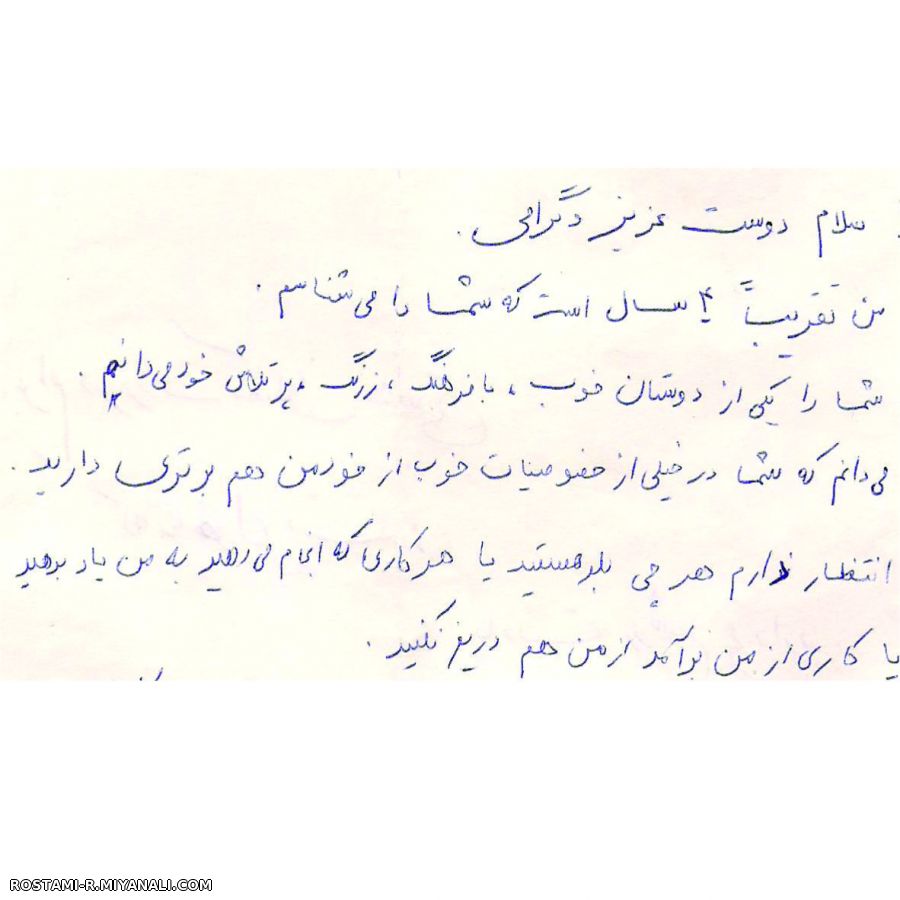 سلام دوست عزیز و گرامی.
من تقریباً ۴ سال است که شما را می شناسم.
شما را یکی از دوستان خوب، با فرهنگ، زرنگ، پر تلاش خود می دانیم.
می دانم که شما در خیلی از خصوصیات خوب از خود من هم برتری دارید.
انتظار دارم هر چی بلد هستید یا هر کاری که انجام می دهید به من یاد بدهید
یا کاری از من برآمد از من هم دریغ نکنید.
ROSTAMI-R.MIYANALI.COM